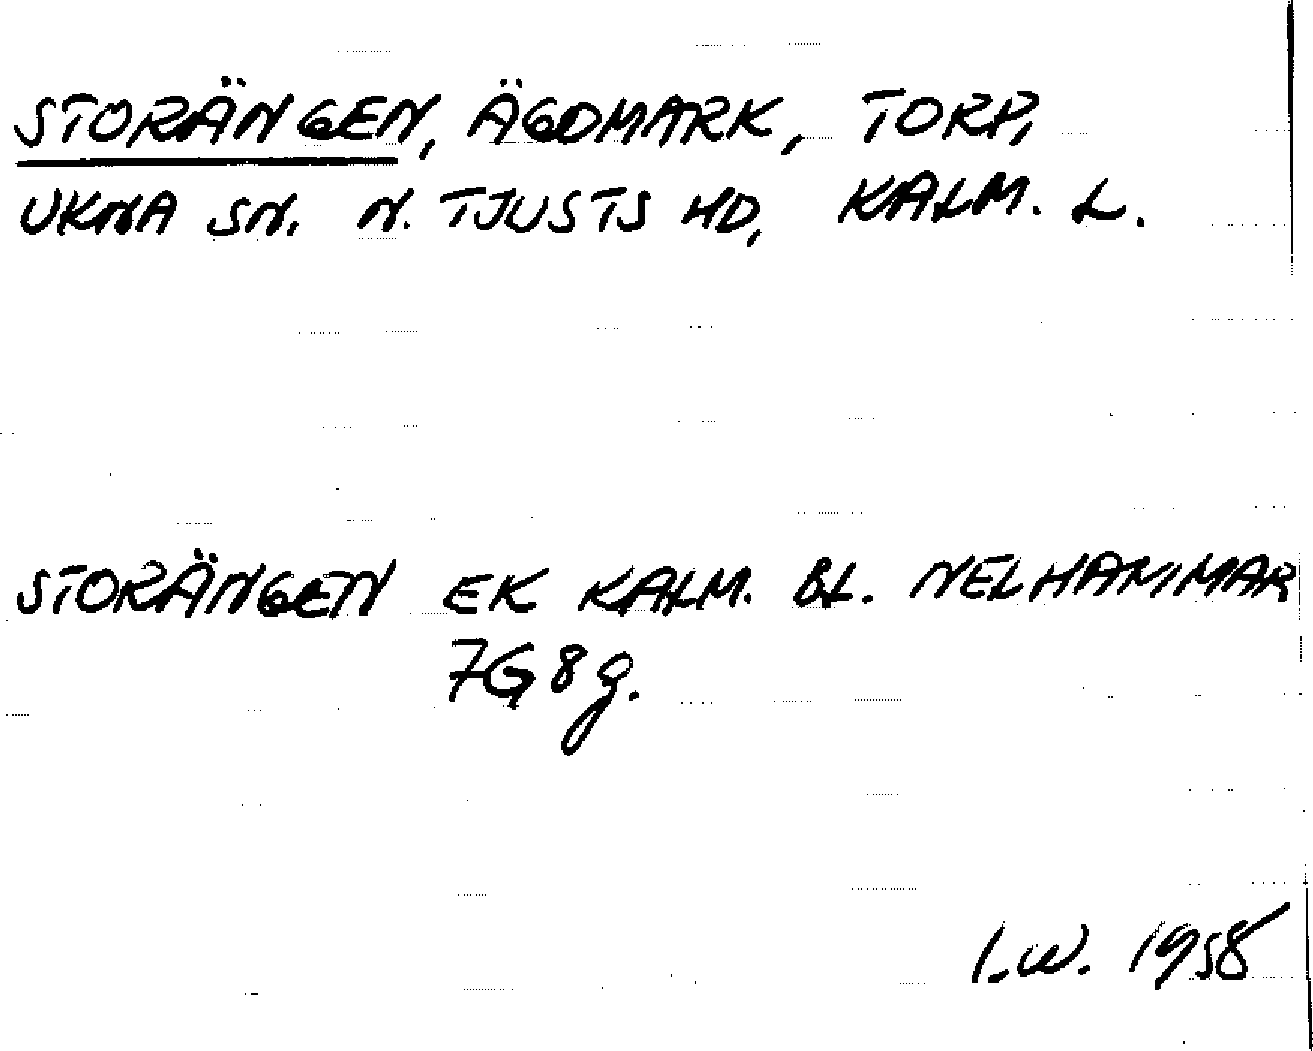 STORÄNGEN, ÄGOMARK, TORP,
UKNA SN. N. TJUSTS HD, KALM. L.
STORÄNGEN EK KALM. BL. NELHAMMAR
7G8g.
I.W. 1958